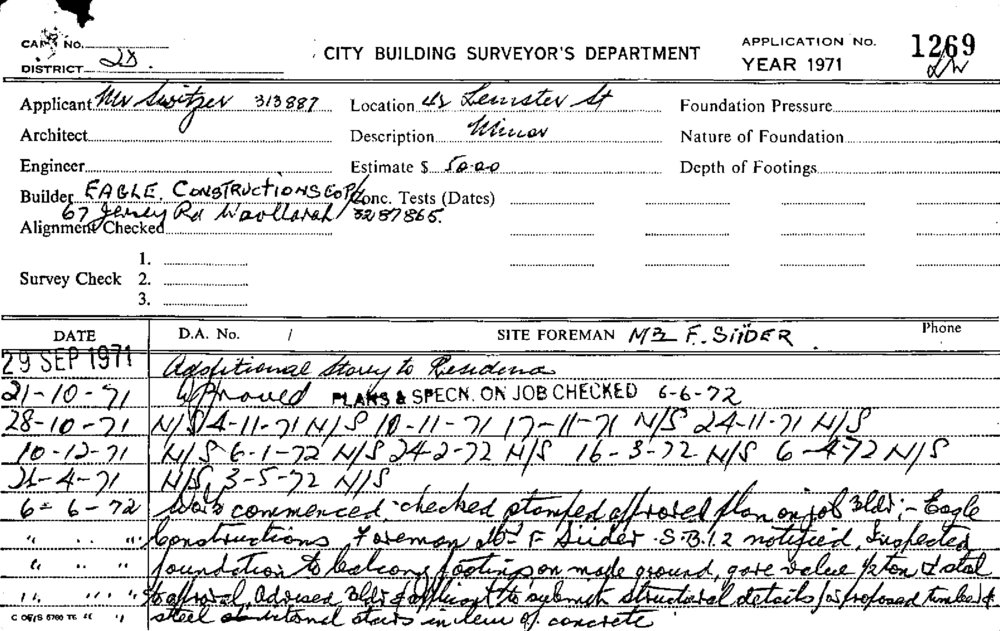 CARD No.
DISTRICT 2B.
CITY BUILDING SURVEYOR'S DEPARTMENT
APPLICATION No. 1269
YEAR 1971
Applicant Mr Switzer 313887 Location Lemster St Foundation Pressure
Architect Description Minor Nature of Foundation
Engineer Estimate $ 5000 Depth of Footings
Builder EAGLE. CONSTRUCTIONS CO P/L Conc. Tests (Dates)
67 Jersey Rd Woollarah 3287865.
Alignment Checked
1.
Survey Check 2.
3.
DATE D.A. No. / SITE FOREMAN MR F. SIIDER Phone
29 SEP 1971 Additional Storey to Residence
21-10-71 Approved PLANS & SPECN. ON JOB CHECKED 6-6-72
28-10-71 N/S 4-11-71 N/S 10-11-71 17-11-71 N/S 24-11-71 N/S
10-12-71 N/S 6-1-72 N/S 24-2-72 N/S 16-3-72 N/S 6-4-72 N/S
21-4-71 N/S, 3-5-72 N/S
6-6-72 Work commenced, checked stamped approved plan on job Bldr:- Eagle
" " " Constructions, Foreman Mr F Siider S.B.1.2 notified, Inspected
" " " foundation to balcony footings on made ground, gave value ½ ton &
" " " to approval, Advised Bldr & applicant to submit structural details for proposed timber &
steel internal stairs in lieu of concrete